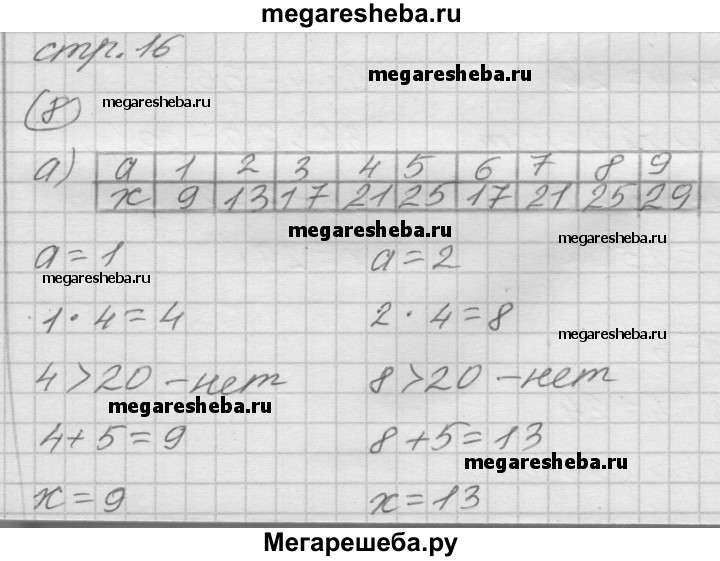 megaresheba.ru
стр. 16
megaresheba.ru
8 megaresheba.ru
а) а 1 2 3 4 5 6 7 8 9
х 9 13 17 21 25 17 21 25 29
megaresheba.ru megaresheba.ru
а = 1 а = 2
megaresheba.ru
1 · 4 = 4 2 · 4 = 8
megaresheba.ru
4 > 20 - нет 8 > 20 - нет
megaresheba.ru
4 + 5 = 9 8 + 5 = 13
megaresheba.ru
х = 9 х = 13
Мегарешеба.ру